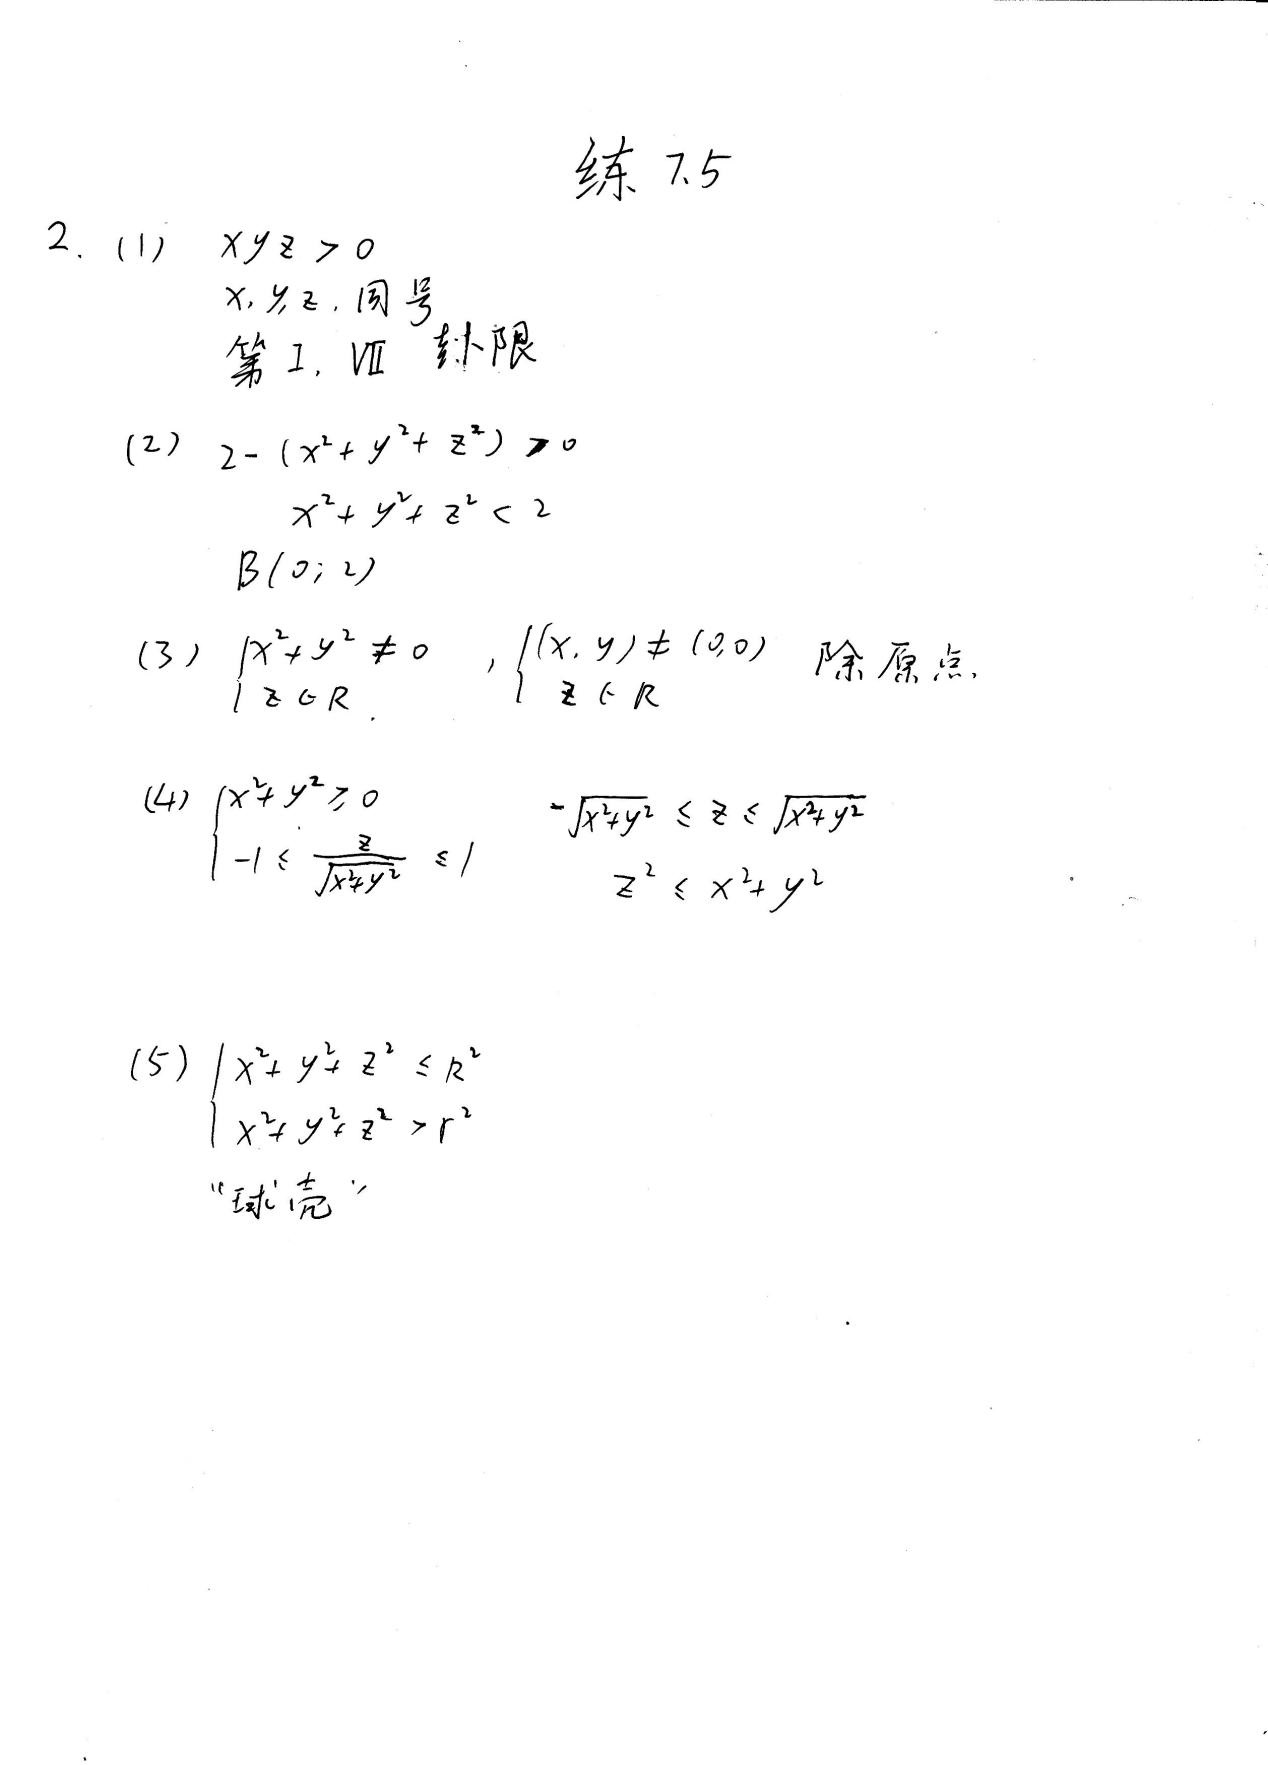 练 7.5
2. (1) xyz > 0
x, y, z, 同号
第 I, VII 卦限
(2) 2-(x²+y²+z²) > 0
x²+y²+z² < 2
B(0; 2)
(3) { x²+y² ≠ 0 , { (x, y) ≠ (0,0) 除原点.
z ∈ R. z ∈ R
(4) { x²+y² ≥ 0 -√(x²+y²) ≤ z ≤ √(x²+y²)
-1 ≤ z/√(x²+y²) ≤ 1 z² ≤ x²+y²
(5) { x²+y²+z² ≤ R²
x²+y²+z² > r²
"球壳"